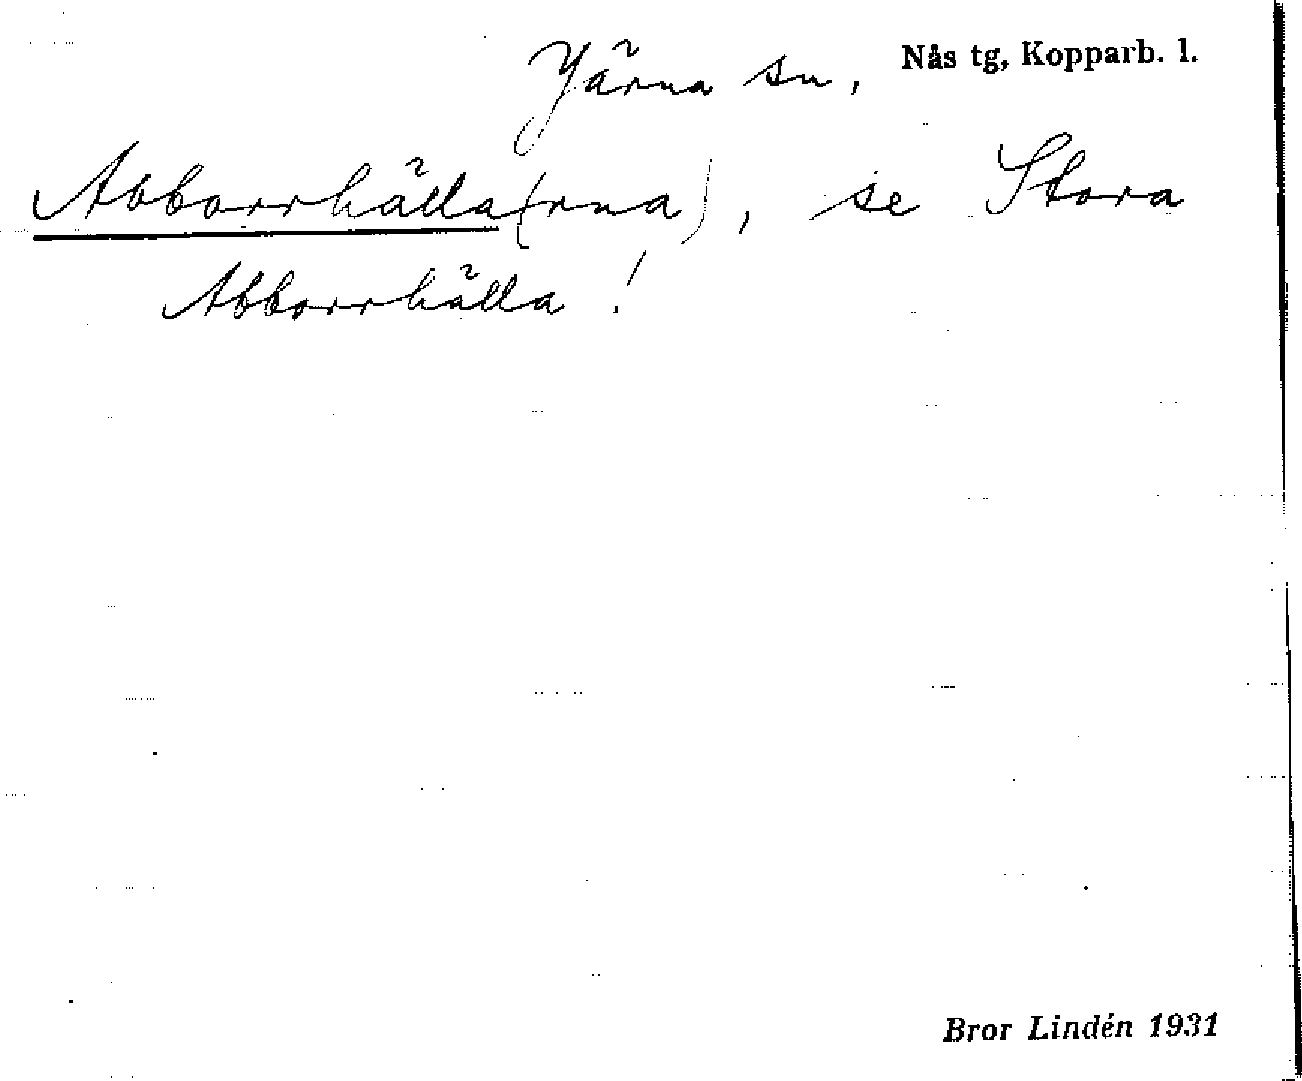 Järna sn, Nås tg, Kopparb. l.
Abborrhälla(rna), se Stora
Abborrhälla!
Bror Lindén 1931